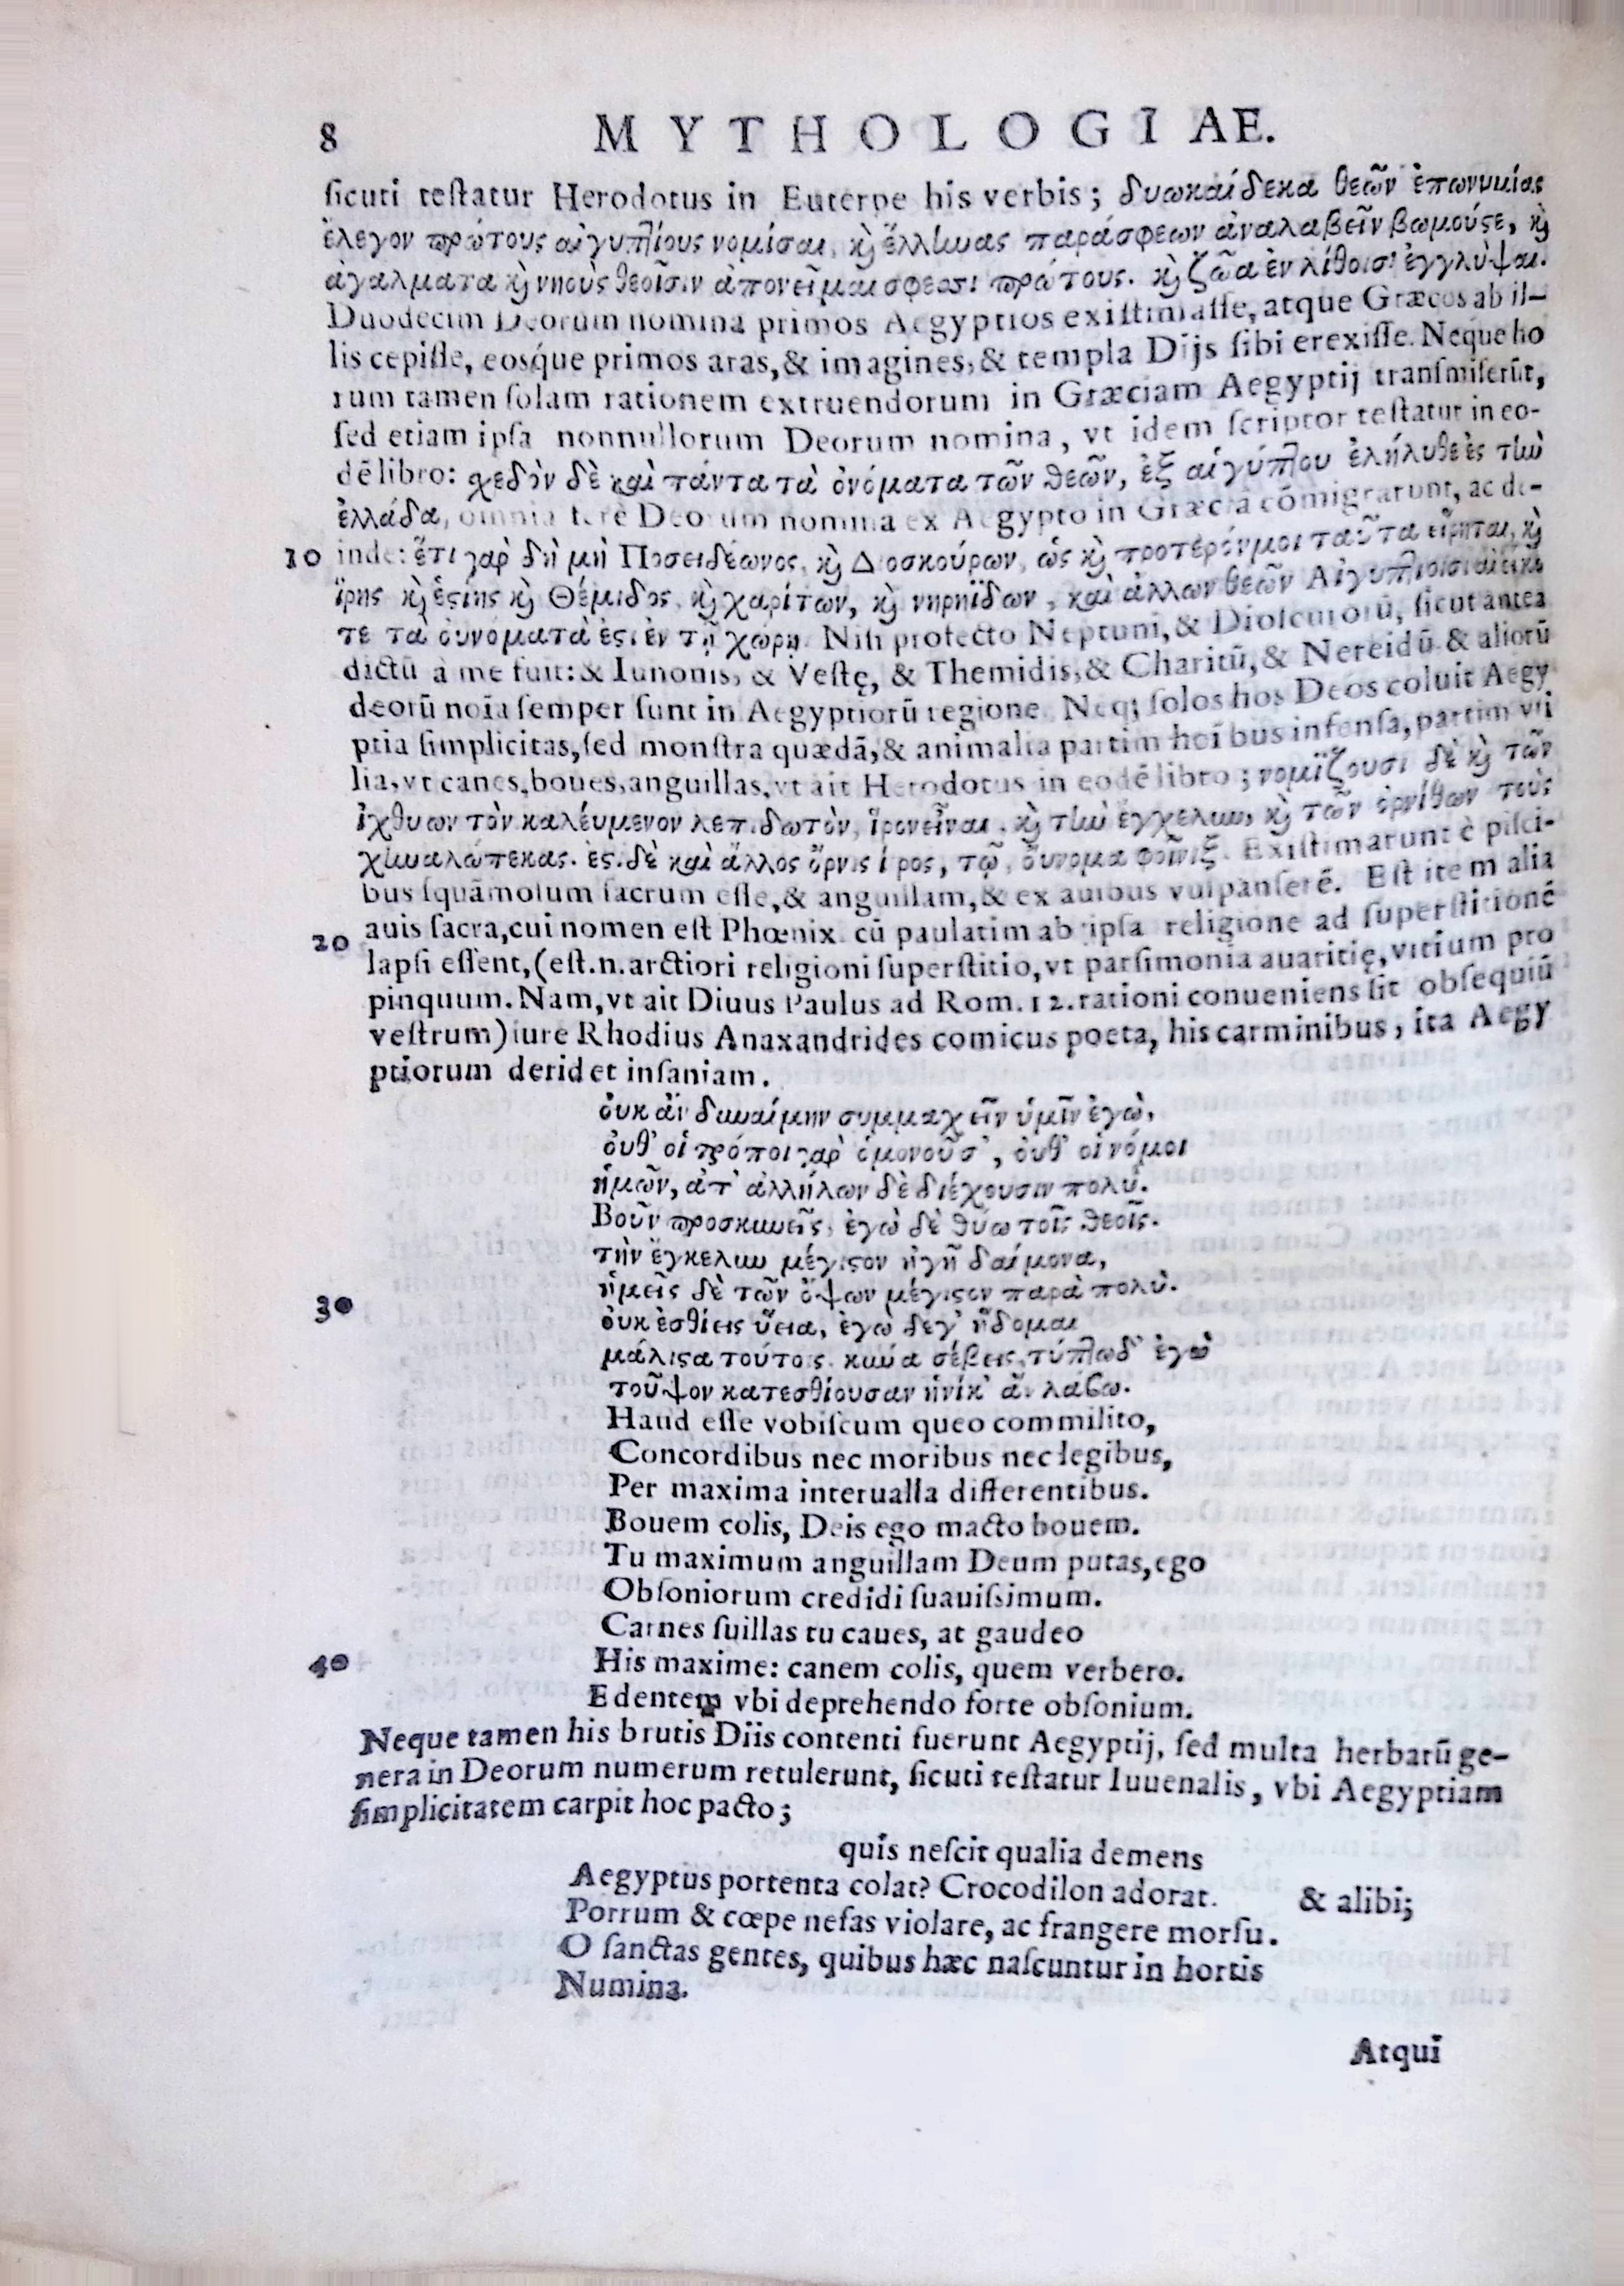 8 MYTHOLOGIAE.
ſicuti teſtatur Herodotus in Euterpe his verbis; δυωκαίδεκα θεῶν ἐπωνυμίας
ἔλεγον πρώτους αἰγυπίους νομίσαι, κὶ ἕλληνας παράσφεων ἀναλαβεῖν βωμούςε, κὶ
ἀγάλματα κὶ νηοὺς θεοῖσιν ἀπονεῖμαι σφεασι πρώτους. κὶ ζῶα ἐν λίθοισι ἐγγλύψαι.
Duodecim Deorum nomina primos Aegyptios exiſtimaſſe, atque Græcos ab il-
lis cepiſſe, eosq́ue primos aras, & imagines, & templa Dijs ſibi erexiſſe. Neque ho
rum tamen ſolam rationem extruendorum in Græciam Aegyptij tranſmiſerūt,
ſed etiam ipſa nonnullorum Deorum nomina, vt idem ſcriptor teſtatur in eo-
dē libro: χεδὸν δὲ καὶ πάντα τὰ ὀνόματα τῶν θεῶν, ἐξ αἰγύπου ἐλήλυθε ἐς τὴν
ἑλλάδα, omnia ferè Deorum nomina ex Aegypto in Græcia cōmigrarunt, ac de-
10 inde: ἔτι γαρ δὴ μὴ Ποσειδέωνος, κὶ Διοσκούρων, ὡς κὶ προτερόνμοι ταῦτα εἴρηται, κὶ
ἵρης κὶ ἑςίης κὶ Θέμιδος, κὶ χαρίτων, κὶ νηρηΐδων, καὶ ἄλλων θεῶν Αἰγυπίοισι αἰεὶκο
τε τὰ ὀυνόματά ἐςι ἐν τῇ χώρῃ. Niſi profecto Neptuni, & Dioſcurorū, ſicut antea
dictū à me fuit: & Iunonis, & Veſtę, & Themidis, & Charitū, & Nereidū & aliorū
deorū noīa ſemper ſunt in Aegyptiorū regione. Neq; ſolos hos Deos coluit Aegy
ptia ſimplicitas, ſed monſtra quædā, & animalia partim hoībus infenſa, partim vti
lia, vt canes, boues, anguillas, vt ait Herodotus in eodē libro; νομίζουσι δὲ κὶ τῶν
ἰχθυων τὸν καλέυμενον λεπιδωτὸν, ἱρονεῖναι, κὶ τὴν ἐγχελυν, κὶ τῶν ὀρνίθων τοὺς
χηναλώπεκας. ἐςι δὲ καὶ ἄλλος ὄρνις ἱρος, τῷ, ὄυνομα φοῖνιξ. Exiſtimarunt è piſci-
bus ſquāmoſum ſacrum eſſe, & anguillam, & ex auibus vulpanſerē. Eſt item alia
20 auis ſacra, cui nomen eſt Phœnix. cū paulatim ab ipſa religione ad ſuperſtitionē
lapſi eſſent, (eſt.n.arctiori religioni ſuperſtitio, vt parſimonia auaritię, vitium pro
pinquum. Nam, vt ait Diuus Paulus ad Rom. 12. rationi conueniens ſit obſequiū
veſtrum) iure Rhodius Anaxandrides comicus poeta, his carminibus, ita Aegy
ptiorum deridet inſaniam.
ὀυκ ἀν δυναίμην συμμαχεῖν ὑμῖν ἐγὼ,
ὀυθ' οἱ τρόποι γαρ ὁμονοῦσ', ὀυθ' οἱ νόμοι
ἡμῶν, ἀπ' ἀλλήλων δὲ διέχουσιν πολύ.
Βοῦν προσκυνεῖς, ἐγὼ δὲ θύω τοῖς θεοῖς.
τὴν ἔγκελυν μέγιςον ἡγῇ δαίμονα,
ἡμεῖς δὲ τῶν ὄψων μέγιςον παρὰ πολὺ.
30 ὀυκ ἐσθίεις ὕεια, ἐγὼ δεγ' ἥδομαι
μάλιςα τούτοις. κύνα σέβεις, τύπω δ' ἐγὼ
τοῦψον κατεσθίουσαν ἡνίκ' ἂν λάβω.
Haud eſſe vobiſcum queo commilito,
Concordibus nec moribus nec legibus,
Per maxima interualla differentibus.
Bouem colis, Deis ego macto bouem.
Tu maximum anguillam Deum putas, ego
Obſoniorum credidi ſuauiſsimum.
Carnes ſuillas tu caues, at gaudeo
40 His maxime: canem colis, quem verbero.
Edentem vbi deprehendo forte obſonium.
Neque tamen his brutis Diis contenti fuerunt Aegyptij, ſed multa herbarū ge-
nera in Deorum numerum retulerunt, ſicuti teſtatur Iuuenalis, vbi Aegyptiam
ſimplicitatem carpit hoc pacto;
quis neſcit qualia demens
Aegyptus portenta colat? Crocodilon adorat. & alibi;
Porrum & cœpe nefas violare, ac frangere morſu.
O ſanctas gentes, quibus hæc naſcuntur in hortis
Numina.
Atqui